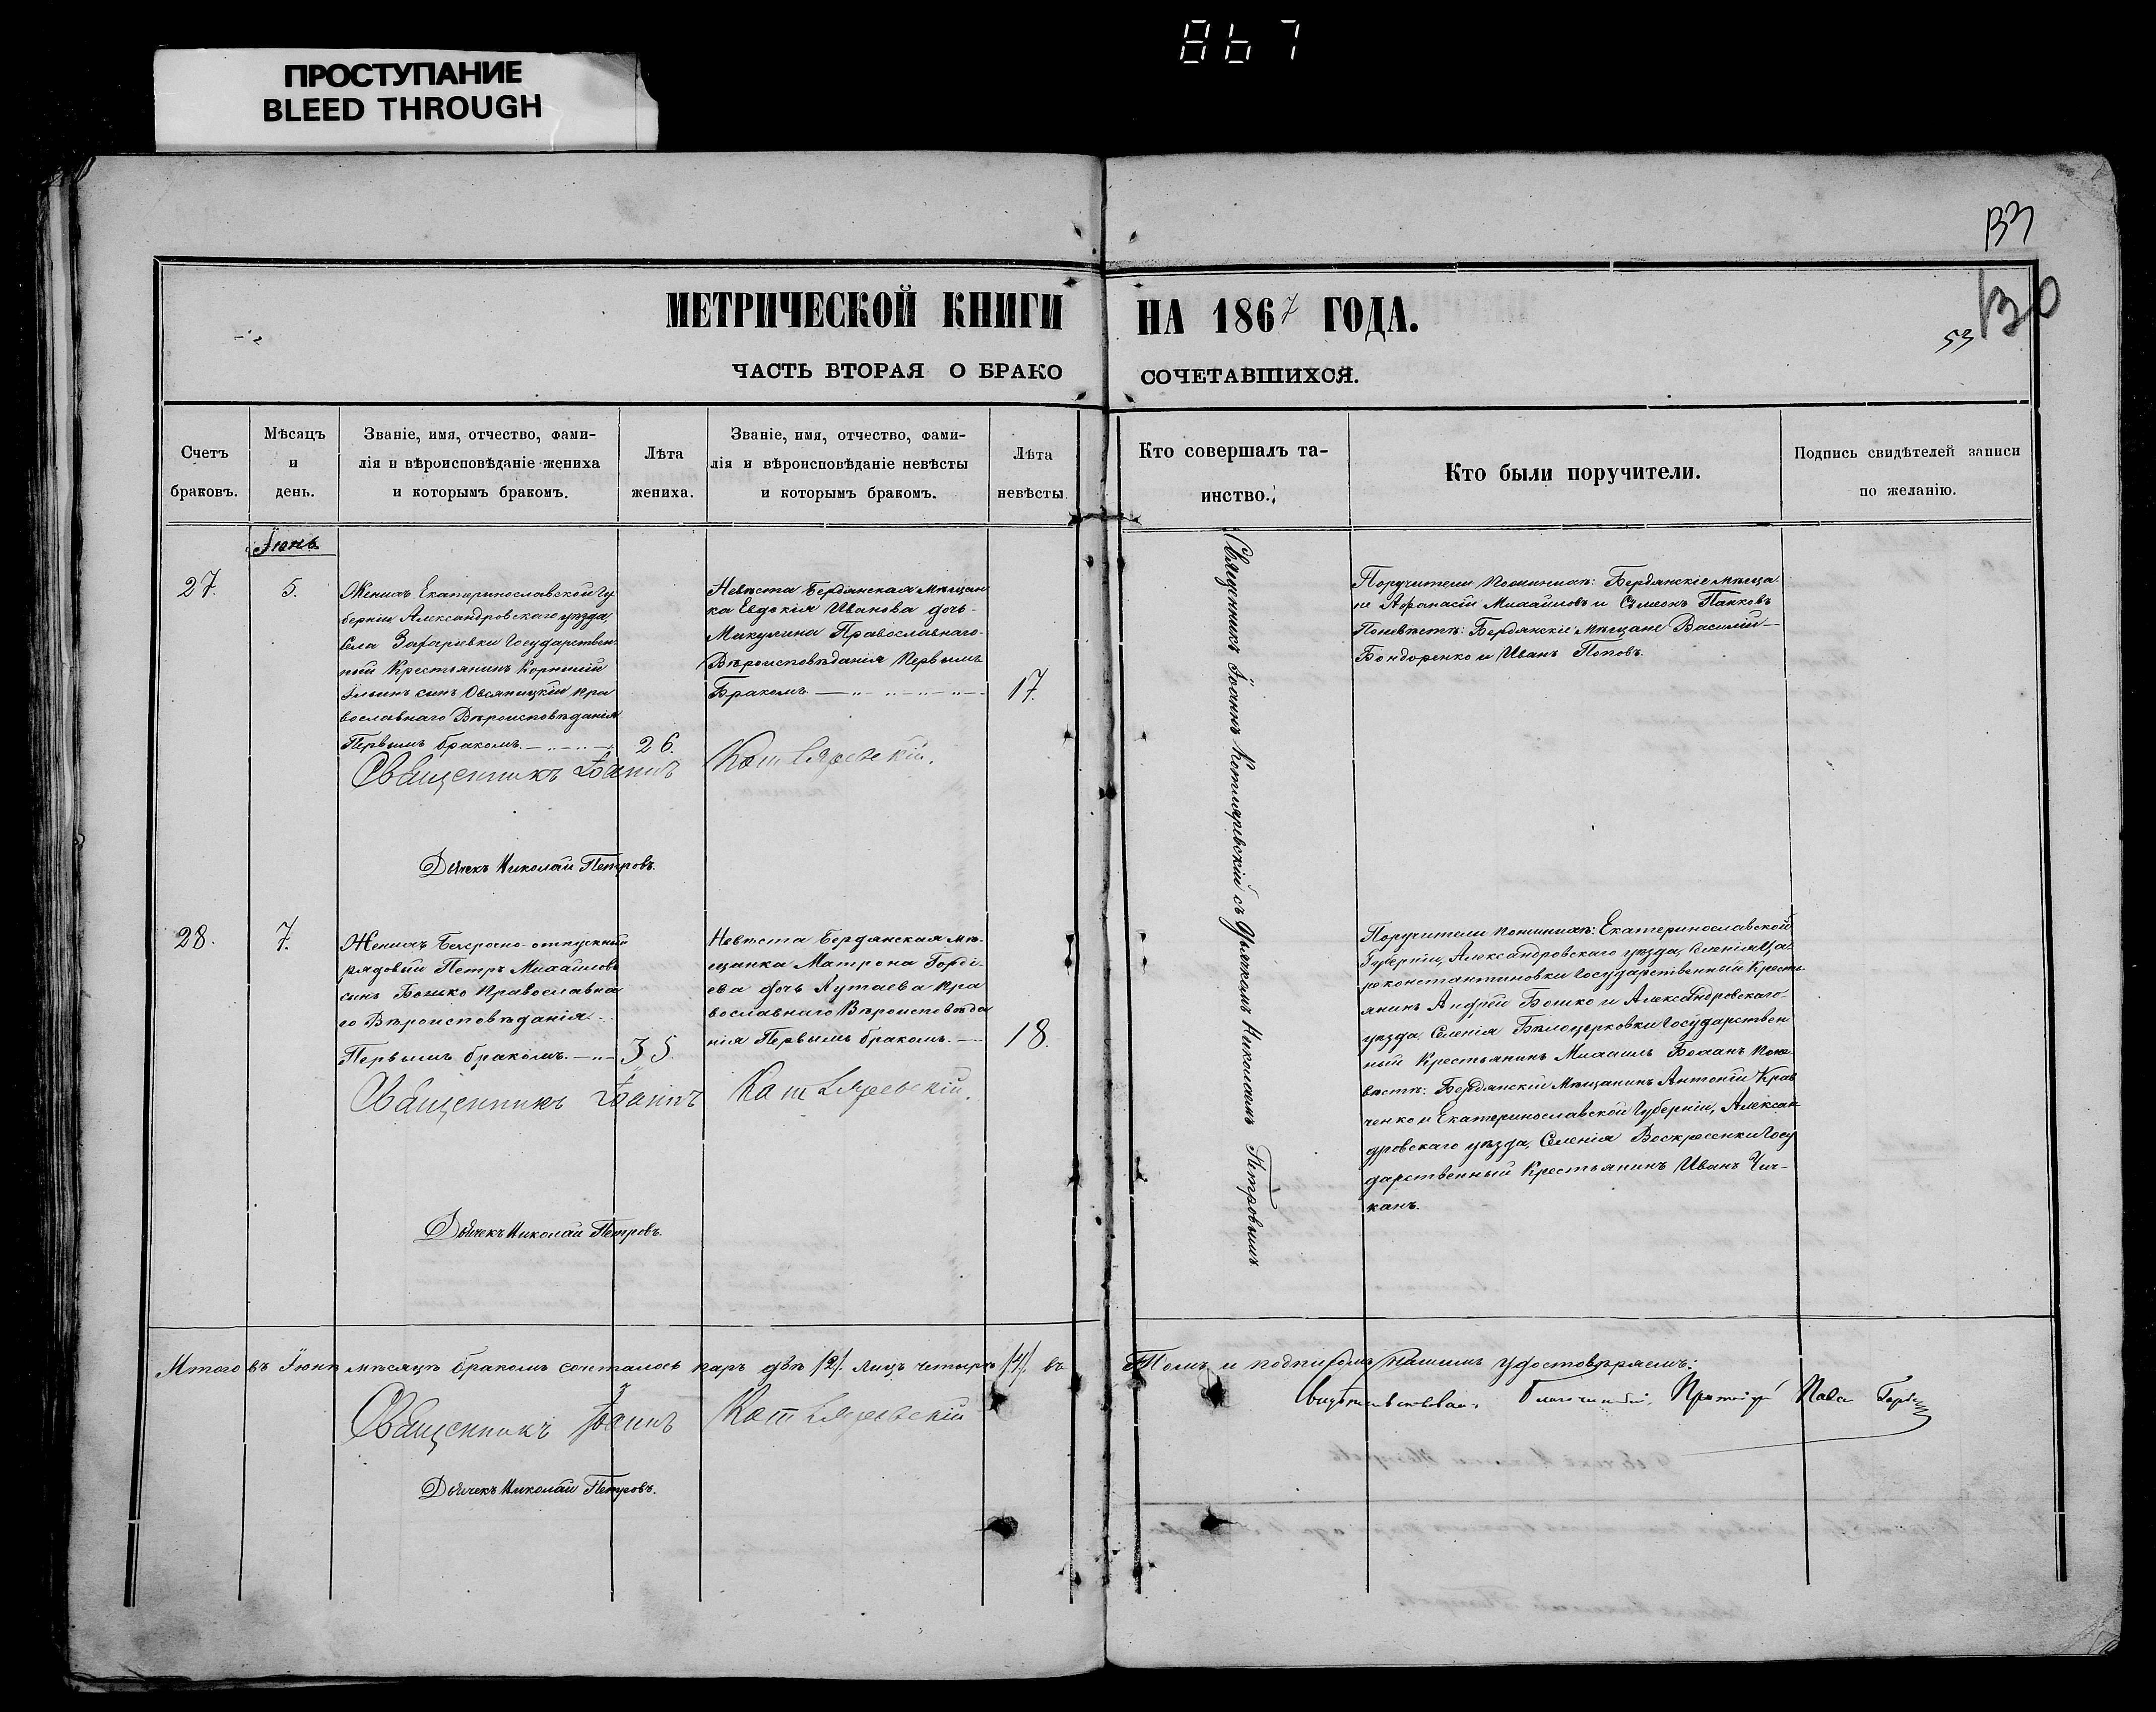 867
ПРОСТУПАНИЕ
BLEED THROUGH
133
130
53
МЕТРИЧЕСКОЙ КНИГИ НА 1867 ГОДА.
ЧАСТЬ ВТОРАЯ О БРАКОСОЧЕТАВШИХСЯ.
Счетъ
браковъ.
Мѣсяцъ
и
день.
Званіе, имя, отчество, фами-
лія и вѣроисповѣданіе жениха
и которымъ бракомъ.
Лѣта
жениха.
Званіе, имя, отчество, фами-
лія и вѣроисповѣданіе невѣсты
и которымъ бракомъ.
Лѣта
невѣсты.
Кто совершалъ та-
инство.
Кто были поручители.
Подпись свидѣтелей записи
по желанію.
Іюнь
27.
5.
Женихъ Екатеринославской Гу
берніи Александровскаго уѣзда,
Села Захарьевки Государствен
ный Крестьянинъ Корнилій
Ильинъ сынъ Овсяницкій пра
вославнаго Вѣроисповѣданія
Первымъ бракомъ.
26.
Невѣста Бердянская Мѣщан
ка Евдокія Иванова дочь
Микулина Православнаго
Вѣроисповѣданія Первымъ
Бракомъ
17.
Священникъ Іоаннъ Котляревскій.
Дьячекъ Николай Петровъ.
Священникъ Іоаннъ Котляревскій съ Дьячкомъ Николаемъ Петровымъ
Поручители по женихѣ: Бердянскіе мѣща
не Афанасій Михайловъ и Сѵмеонъ Папковъ
По невѣстѣ: Бердянскіе Мѣщане Василій
Бондаренко и Иванъ Поповъ.
28.
7.
Женихъ Безсрочно-отпускный
рядовый Петръ Михайловъ
сынъ Бошко Православна
го Вѣроисповѣданія
Первымъ бракомъ.
35.
Невѣста Бердянская мѣ-
щанка Матрона Горді-
ева дочь Кутаева пра
вославнаго Вѣроисповѣда
нія Первымъ бракомъ.
18.
Священникъ Іоаннъ Котляревскій.
Дьячекъ Николай Петровъ.
Поручители по женихѣ: Екатеринославской
Губерніи, Александровскаго уѣзда, Селенія Ца
реконстантиновки Государственный Кресть
янинъ Андрей Бошко и Александровскаго
уѣзда, Селенія Бѣлоцерковки Государствен
ный Крестьянинъ Михаилъ Божанъ По не
вѣстѣ: Бердянскій Мѣщанинъ Антоній Крав
ченко и Екатеринославской Губерніи, Алексан
дровскаго уѣзда, Селенія Воскресенки Госу
дарственный Крестьянинъ Иванъ Чи-
канъ.
Итого въ Іюнѣ мѣсяцѣ бракомъ сочеталось паръ двѣ /2/. Лицъ четыре /4/. въ Томъ и подписомъ нашимъ удостовѣряемъ:
Священникъ Іоаннъ Котляревскій
Свидѣтельствовалъ Благочинный Протоіерей
Дьячекъ Николай Петровъ.